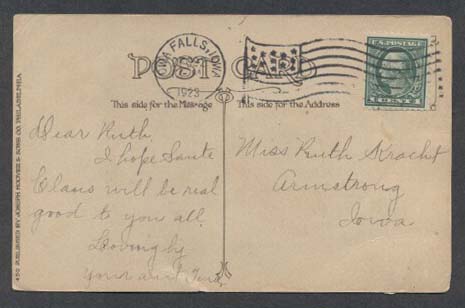 IOWA FALLS, IOWA
1923
POST CARD
U.S. POSTAGE
This side for the Message
This side for the Address
Dear Ruth
I hope Sante
Claus will be real
good to you all
Lovingly
Your aunt
Miss Ruth
Armstrong
Iowa
450 PUBLISHED BY JOSEPH HOOVER & SONS CO. PHILADELPHIA.